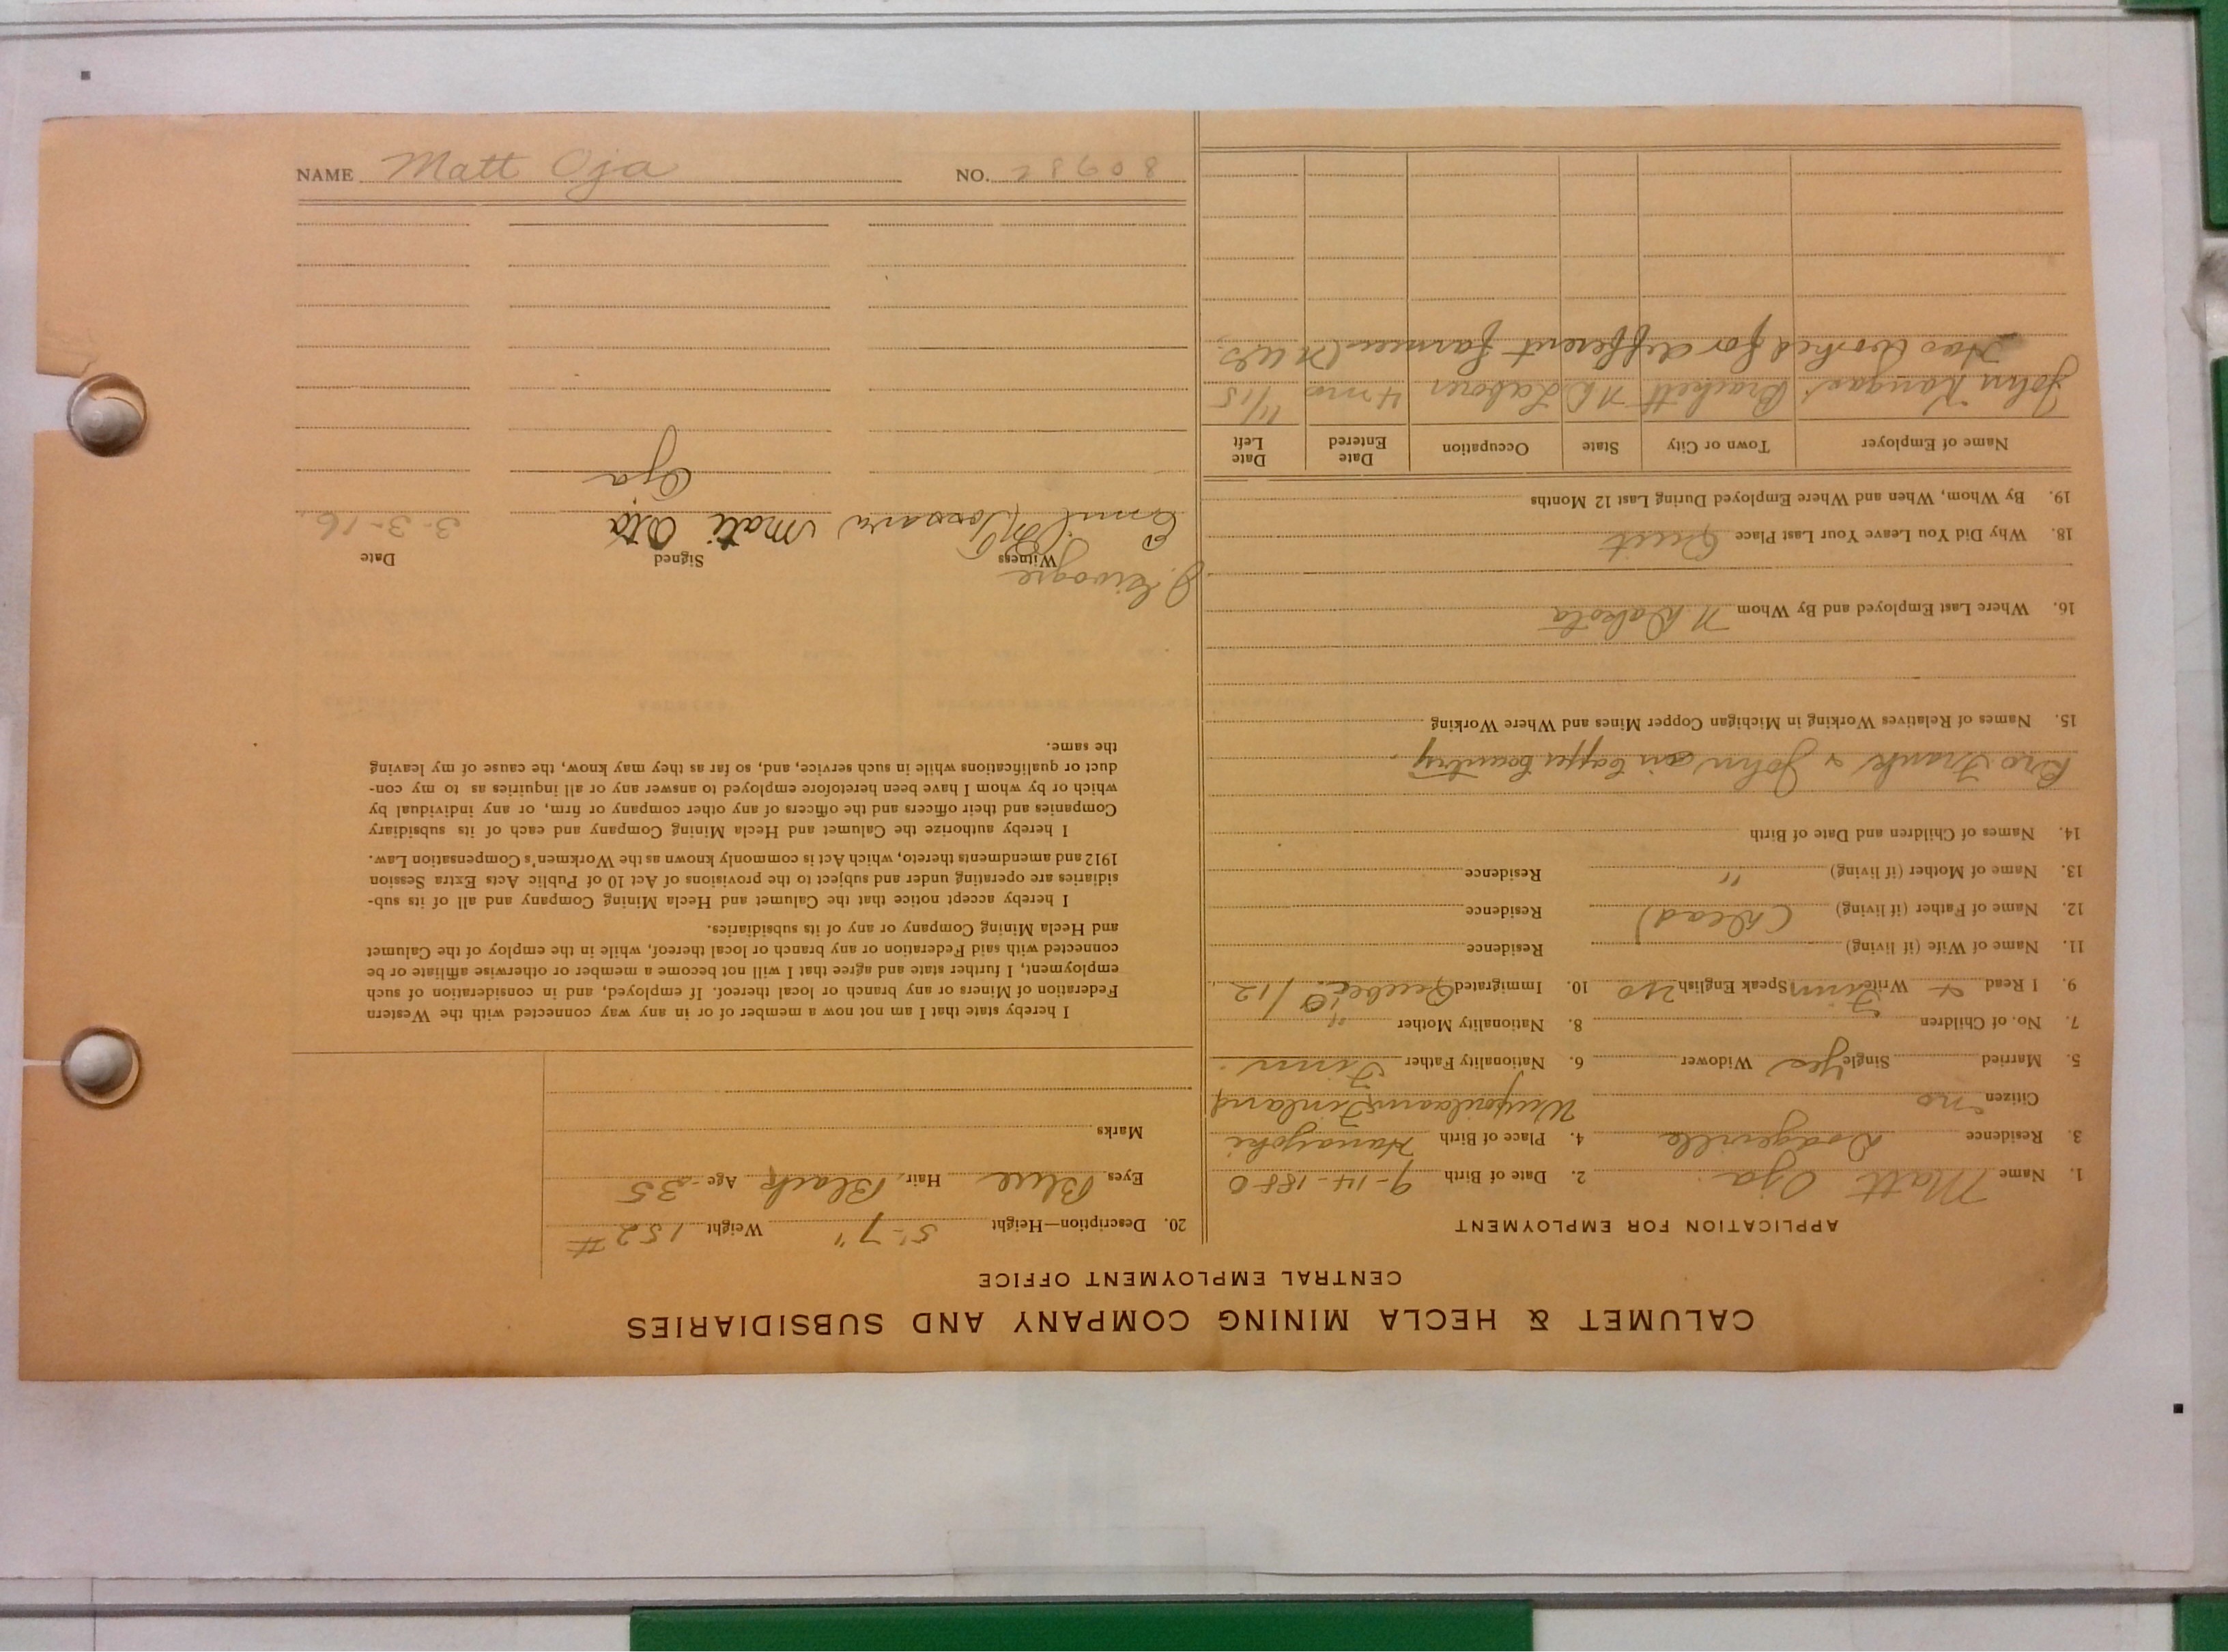 CALUMET & HECLA MINING COMPANY AND SUBSIDIARIES
CENTRAL EMPLOYMENT OFFICE
APPLICATION FOR EMPLOYMENT
1. Name Matt Oja 2. Date of Birth 9-14-1880
3. Residence Dodgeville 4. Place of Birth
Citizen no Finland
5. Married Single Yes Widower 6. Nationality Father Finn
7. No. of Children 8. Nationality Mother "
9. I Read & Write Finn Speak English no 10. Immigrated Quebec 10/12
11. Name of Wife (if living) Residence
12. Name of Father (if living) (Dead) Residence
13. Name of Mother (if living) " Residence
14. Names of Children and Date of Birth
Bro Frank & John in Copper Country
15. Names of Relatives Working in Michigan Copper Mines and Where Working
16. Where Last Employed and By Whom N. Dakota
18. Why Did You Leave Your Last Place Quit
19. By Whom, When and Where Employed During Last 12 Months
Name of Employer Town or City State Occupation Date Entered Date Left
John Kangas Brackett ND Laborer 4 mo 11/15
Has Worked for different farmers
20. Description—Height 5'-7" Weight 152#
Eyes Blue Hair Black Age 35
Marks
I hereby state that I am not now a member of or in any way connected with the Western
Federation of Miners or any branch or local thereof. If employed, and in consideration of such
employment, I further state and agree that I will not become a member or otherwise affiliate or be
connected with said Federation or any branch or local thereof, while in the employ of the Calumet
and Hecla Mining Company or any of its subsidiaries.
I hereby accept notice that the Calumet and Hecla Mining Company and all of its sub-
sidiaries are operating under and subject to the provisions of Act 10 of Public Acts Extra Session
1912 and amendments thereto, which Act is commonly known as the Workmen's Compensation Law.
I hereby authorize the Calumet and Hecla Mining Company and each of its subsidiary
Companies and their officers and the officers of any other company or firm, or any individual by
which or by whom I have been heretofore employed to answer any or all inquiries as to my con-
duct or qualifications while in such service, and, so far as they may know, the cause of my leaving
the same.
Witness Signed Date
Emil Mati Oja 3-3-16
Oja
NAME Matt Oja NO. 80982